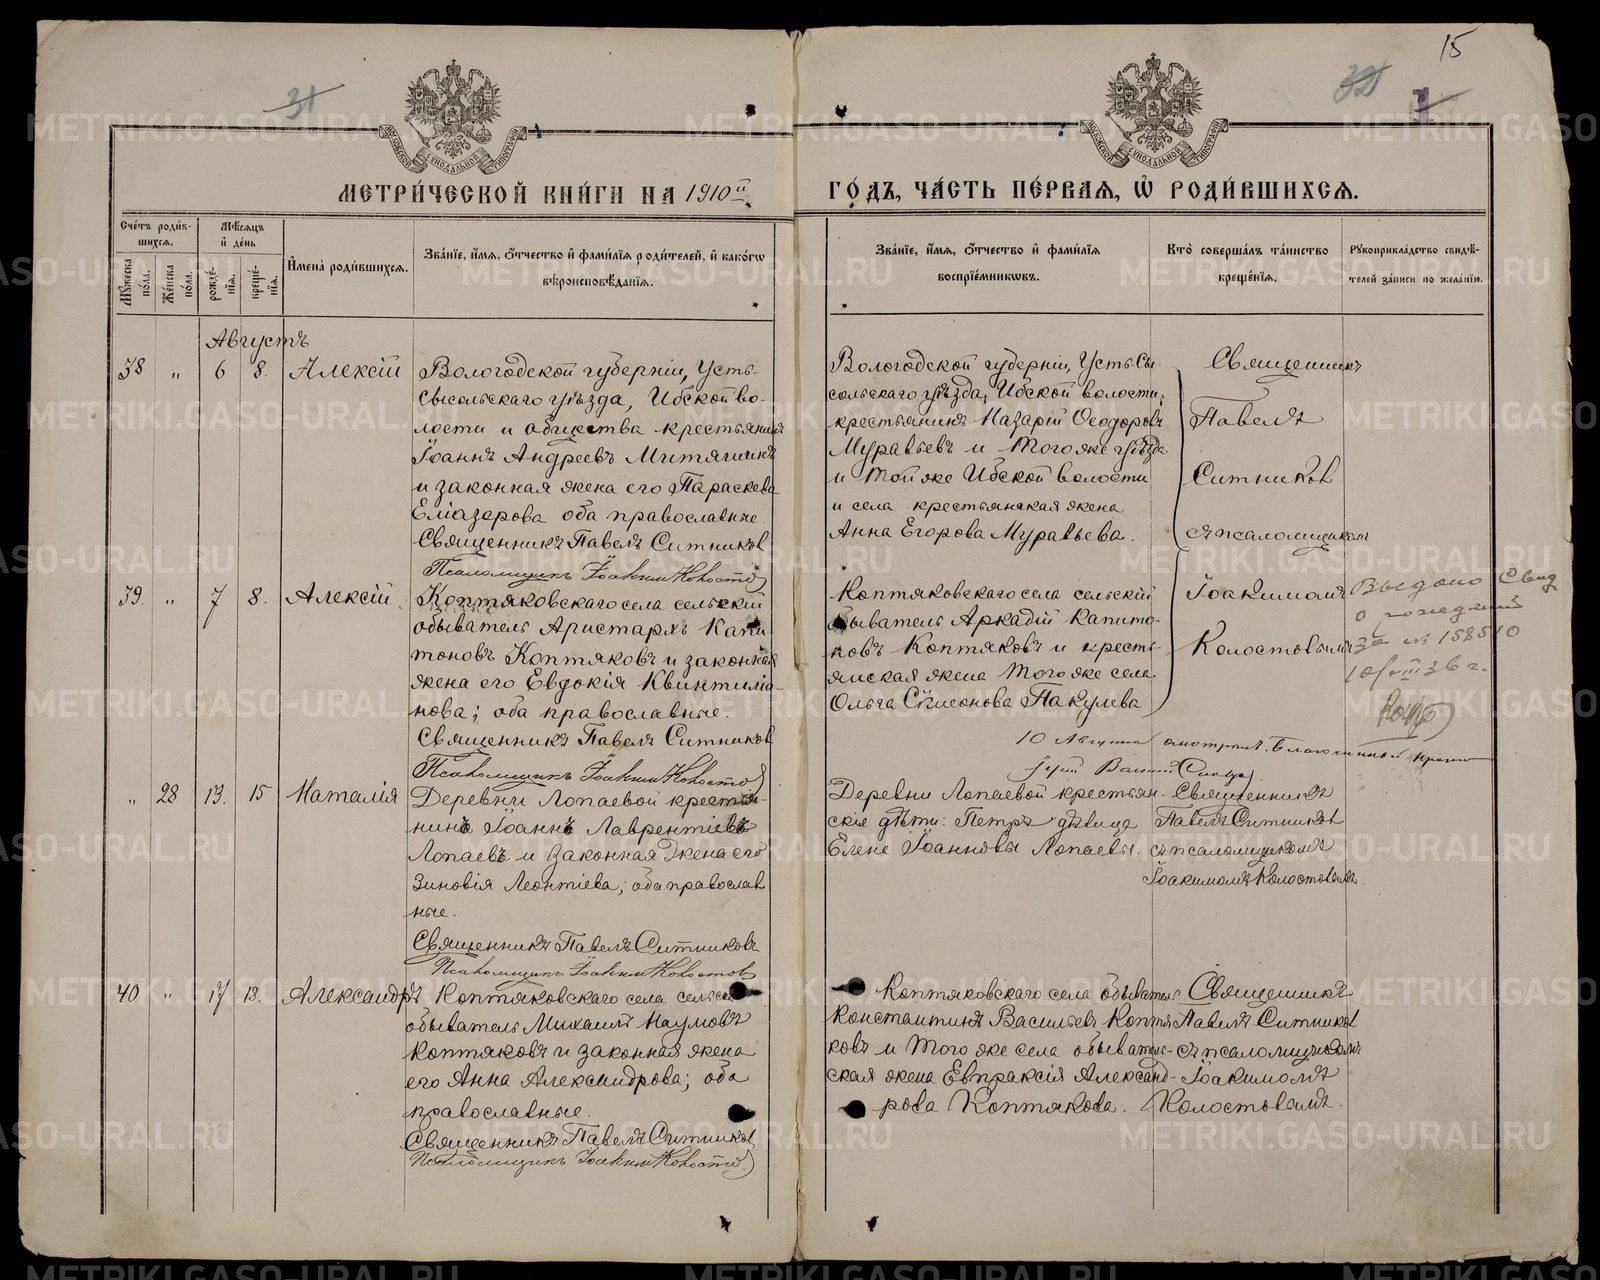 15
31
32
МЕТРИ́ЧЕСКОЙ КНИ́ГИ НА 1910й ГО́ДЪ, ЧА́СТЬ ПЕ́РВАЯ, Ѡ РОДИ́ВШИХСЯ.
Сче́тъ роди́вшихся.
Му́жеска по́ла.
Же́нска по́ла.
Мѣ́сяцъ и де́нь
рожде́нія.
креще́нія.
И́мена роди́вшихся.
Зва́ніе, и́мя, о́тчество и фами́лія роди́телей, и како́гѡ
вѣроисповѣ́данія.
Зва́ніе, и́мя, о́тчество и фами́лія
воспріе́мникѡвъ.
Кто̀ соверша́лъ та́инство
креще́нія.
Рукоприкла́дство свидѣ́телей за́писи по жела́нію.
Августъ
38 „ 6 8. Алексій
Вологодской губерніи, Усть-
Сысольскаго уѣзда, Ибской во-
лости и общества крестьянинъ
Іоаннъ Андреевъ Митяшинъ
и законная жена его Параскева
Еліазарова оба православные.
Священникъ Павелъ Ситниковъ
Псаломщикъ Іоакимъ Колостовъ
Вологодской губерніи, Усть Сы-
сольскаго уѣзда, Ибской волости,
крестьянинъ Назарій Ѳеодоровъ
Муравьевъ и того же уѣзда
и той же Ибской волости
и села крестьянская жена
Анна Егорова Муравьева.
Священникъ
Павелъ
Ситниковъ
съ псаломщикомъ
Іоакимомъ
Колостовымъ
39. „ 7 8. Алексій
Коптяковскаго села сельскій
обыватель Аристархъ Капи-
тоновъ Коптяковъ и законная
жена его Евдокія Квинтилiа-
нова; оба православные.
Священникъ Павелъ Ситниковъ
Псаломщикъ Іоакимъ Колостовъ
Коптяковскаго села сельскій
обыватель Аркадій Капито-
новъ Коптяковъ и кресть-
янская жена того же села
Ольга Сѵмеонова Пакулева
Выдано Свид
о рождении
за № 158510
10/VIII 36 г.
10 Августа смотрилъ. Благочинный
„ 28 13. 15 Наталія
Деревни Лопаевой крестья-
нинъ Іоаннъ Лаврентіевъ
Лопаевъ и законная жена его
Зиновія Леонтіева; оба православ
ные.
Священникъ Павелъ Ситниковъ
Псаломщикъ Іоакимъ Колостовъ
Деревни Лопаевой крестьян-
скіе дѣти: Петръ дѣвица
Елене Іоанновы Лопаевы.
Священникъ
Павелъ Ситниковъ
съ псаломщикомъ
Іоакимомъ Колостовымъ.
40 „ 17 18. Александръ
Коптяковскаго села сельскій
обыватель Михаилъ Наумовъ
Коптяковъ и законная жена
его Анна Александрова; оба
православные.
Священникъ Павелъ Ситниковъ
Псаломщикъ Іоакимъ Колостовъ
Коптяковскаго села обыватель
Константинъ Васильевъ Коптя-
ковъ и того же села обыватель-
ская жена Евпраксія Александ-
рова Коптякова.
Священникъ
Павелъ Ситниковъ
съ псаломщикомъ
Іоакимомъ
Колостовымъ.
METRIKI.GASO-URAL.RU